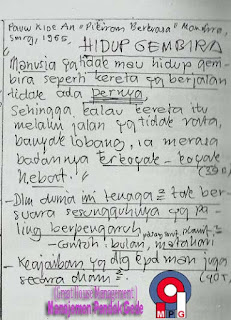 Pauw Kioe An "Pikiran Berkuasa"
Smrg, 1955.
HIDUP GEMBIRA
Manusia yg tidak mau hidup gem-
bira seperti kereta yg berjalan
tidak ada pernya.
Sehingga kalau kereta itu
melalui jalan yg tidak rata,
banyak lobang, ia merasa
badannya terkocak-kocak
hebat.
- Dlm dunia ini tenaga2 tak ber-
suara sesungguhnya yg pa-
ling berpengaruh
- Contoh: bulan, matahari
- Keajaiban yg dtg kpd mon juga
secara diam2.
(Great House Management)
Manajemen Pondok Gede
MPG